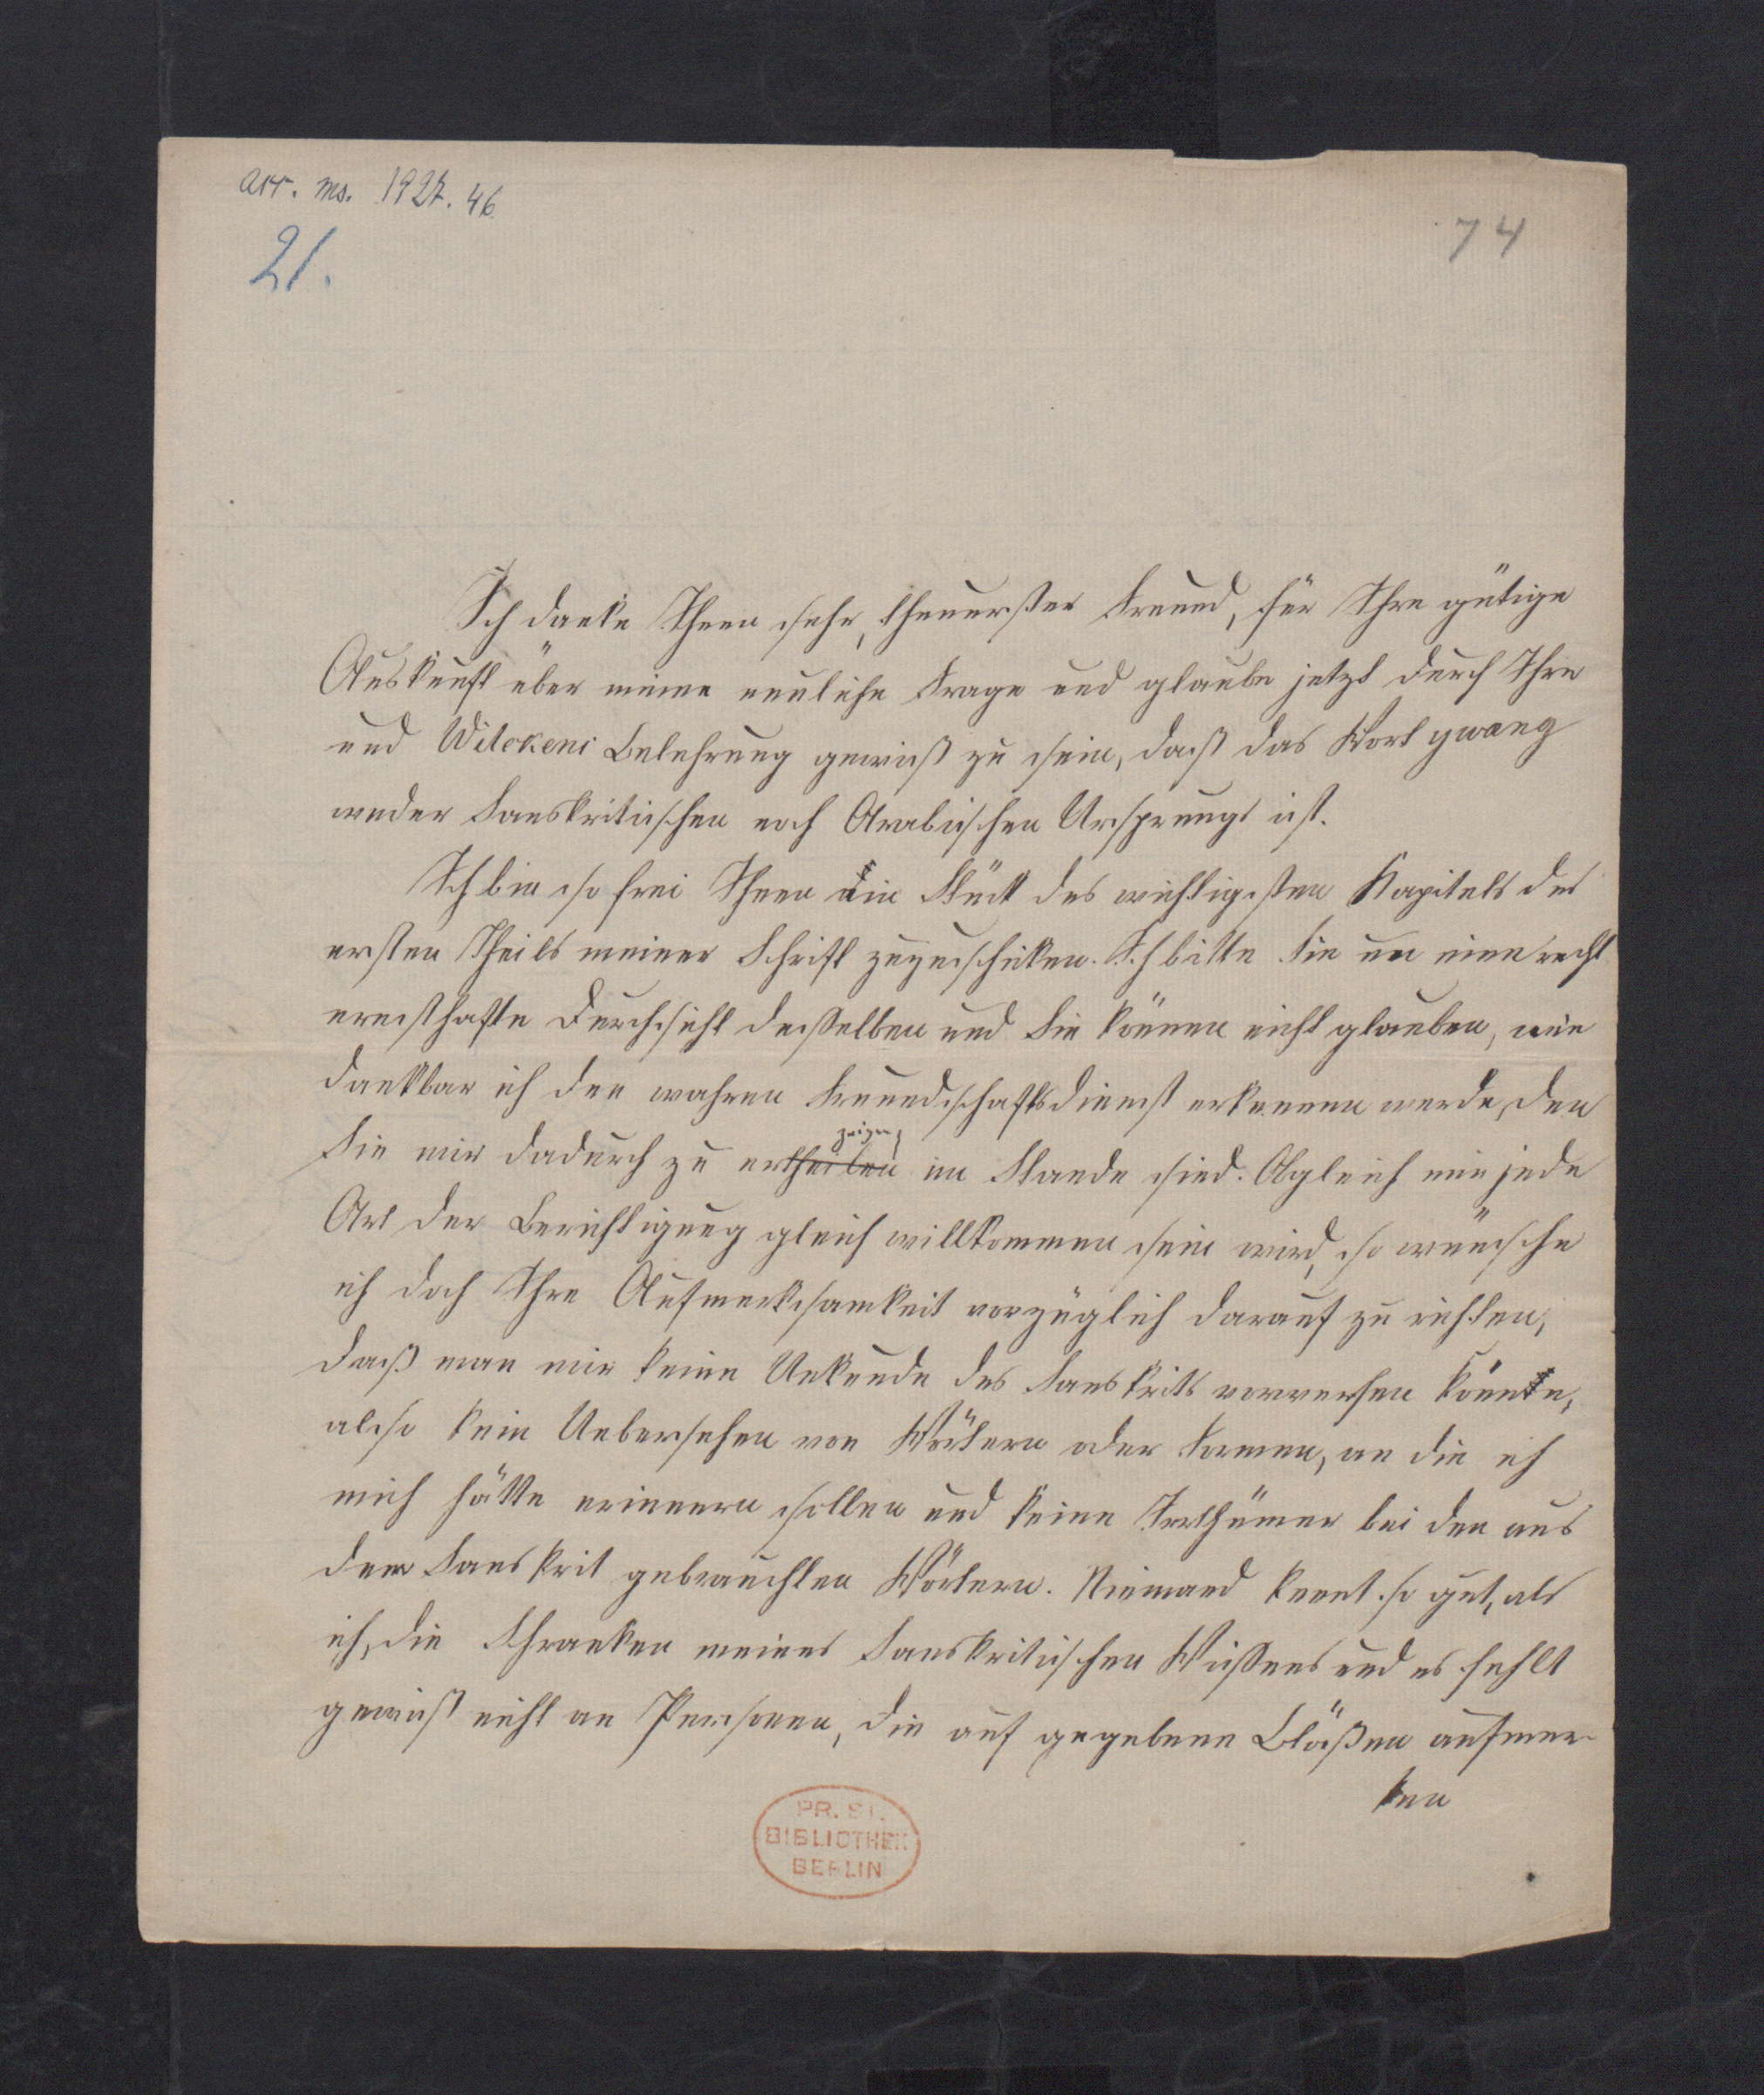 acc. ms. 1927. 46
21.
74
Ich danke Ihnen sehr, theuerster Freund, für Ihre gütige
Auskunft über meine neuliche Frage und glaube jetzt durch Ihre
und Wilckens Belehrung gewiß zu sein, daß das Wort gwang
weder Sanskritischen noch Arabischen Ursprungs ist.
Ich bin so frei Ihnen ein Stück des wichtigsten Kapitels des
ersten Theils meiner Schrift zuzuschicken. Ich bitte Sie um eine recht
ernsthafte Durchsicht desselben und Sie können nicht glauben, wie
dankbar ich den wahren Freundschaftsdienst erkennen werde, den
Sie mir dadurch zu ertheilen im Stande sind. Obgleich mir jede
zeigen
Art der Berichtigung gleich willkommen sein wird, so wünsche
ich doch Ihre Aufmerksamkeit vorzüglich darauf zu richten,
daß man mir keine Unkunde des Sanskrits vorwerfen könne,
also kein Uebersehen von Wörtern oder Formen, an die ich
mich hätte erinnern sollen und keine Irrthümer bei den aus
dem Sanskrit gebrauchten Wörtern. Niemand kennt so gut, als
ich, die Schranken meines Sanskritischen Wissens und es fehlt
gewiß nicht an Personen, die auf gegebene Blößen aufmer-
ken
PR. ST.
BIBLIOTHEK
BERLIN